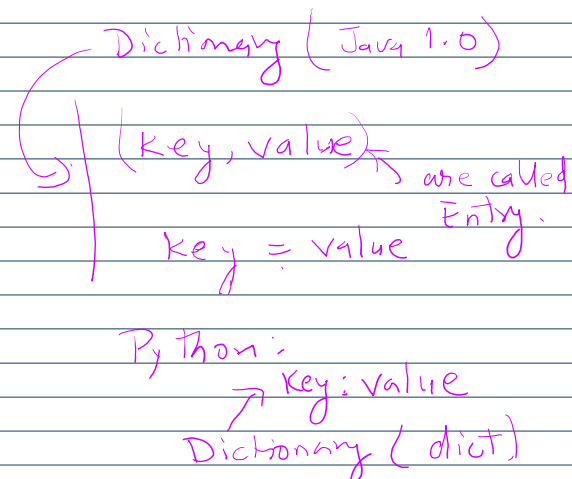 Dictionary (Java 1.0)
(key, value)
are called
Entry.
key = value
Python:
key: value
Dictionary (dict)